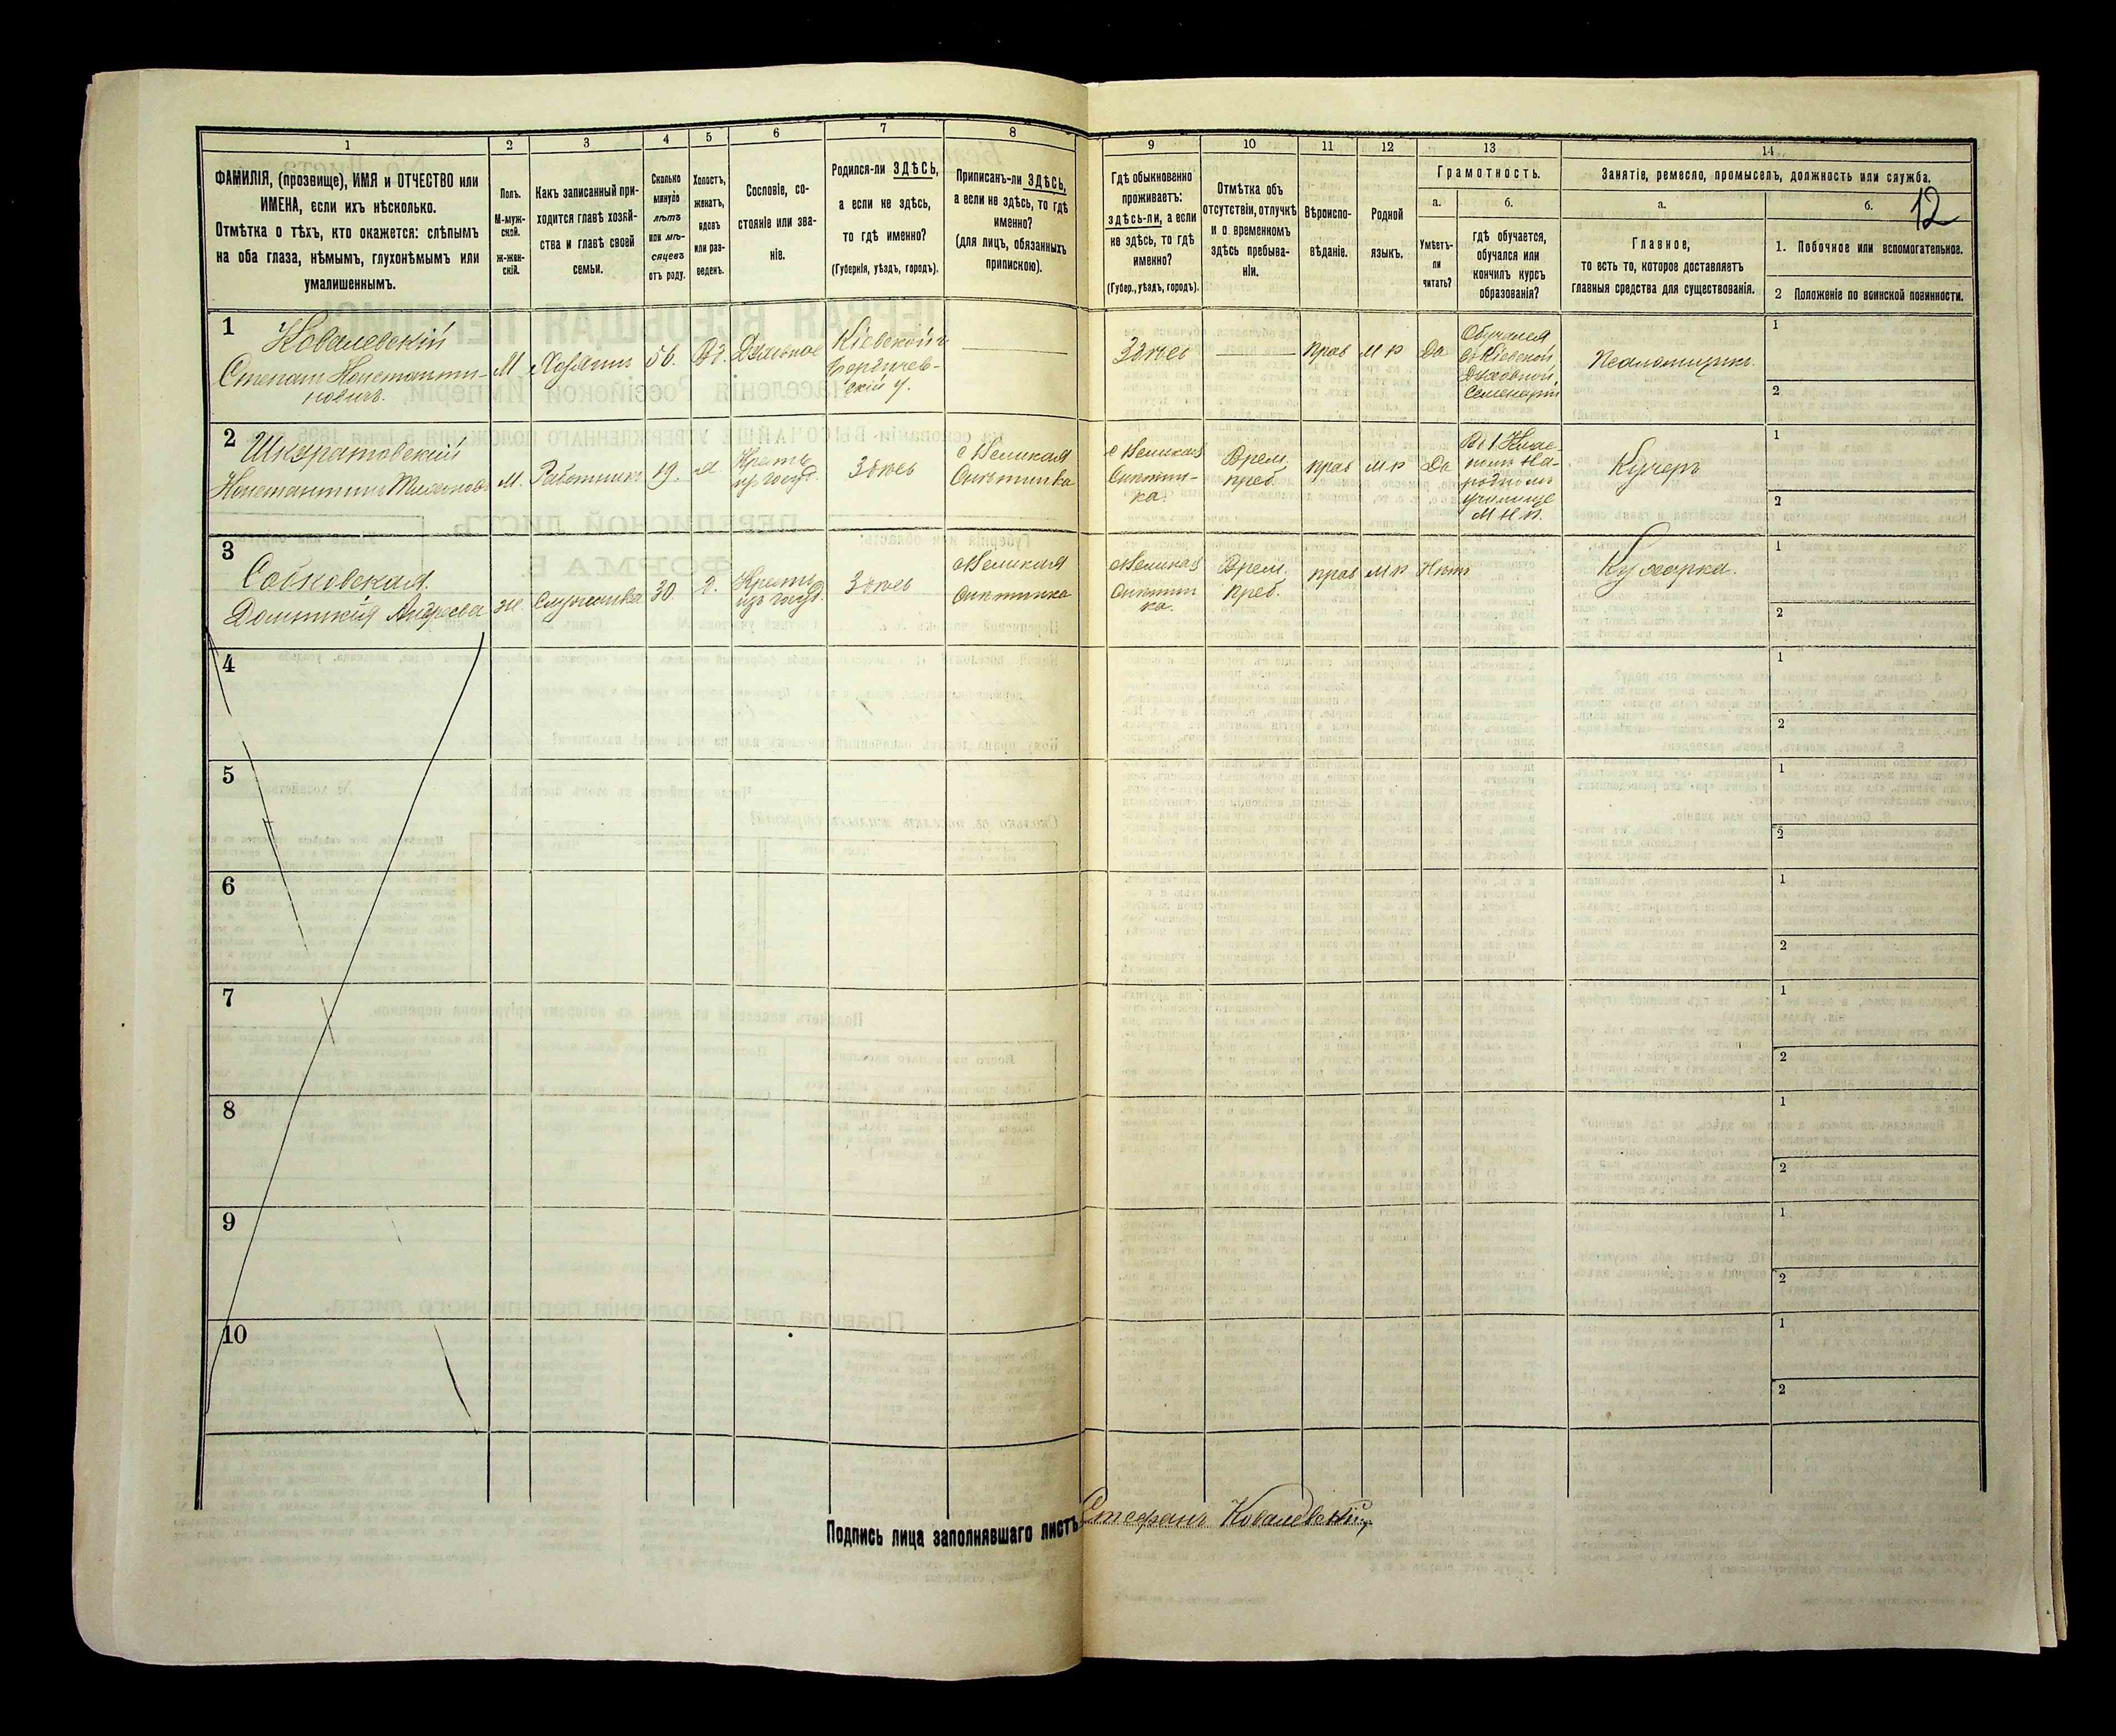 1
2
3
4
5
6
7
8
9
10
11
12
13
14
ФАМИЛІЯ, (прозвище), ИМЯ и ОТЧЕСТВО или
ИМЕНА, если ихъ нѣсколько.
Отмѣтка о тѣхъ, кто окажется: слѣпымъ
на оба глаза, нѣмымъ, глухонѣмымъ или
умалишеннымъ.
Полъ.
М-муж-
ской.
ж-жен-
скій.
Какъ записанный при-
ходится главѣ хозяй-
ства и главѣ своей
семьи.
Сколько
минуло
лѣтъ
или мѣ-
сяцевъ
отъ роду.
Холостъ,
женатъ,
вдовъ
или раз-
веденъ.
Сословіе, со-
стояніе или зва-
ніе.
Родился-ли ЗДѢСЬ,
а если не здѣсь,
то гдѣ именно?
(Губернія, уѣздъ, городъ).
Приписанъ-ли ЗДѢСЬ,
а если не здѣсь, то гдѣ
именно?
(для лицъ, обязанныхъ
припискою).
Гдѣ обыкновенно
проживаетъ:
здѣсь-ли, а если
не здѣсь, то гдѣ
именно?
(Губер., уѣздъ, городъ).
Отмѣтка объ
отсутствіи, отлучкѣ
и о временномъ
здѣсь пребыва-
ніи.
Вѣроиспо-
вѣданіе.
Родной
языкъ.
Грамотность.
а.
Умѣетъ-
ли
читать?
б.
гдѣ обучается,
обучался или
кончилъ курсъ
образованія?
Занятіе, ремесло, промыселъ, должность или служба.
а.
Главное,
то есть то, которое доставляетъ
главныя средства для существованія.
б.
12
1. Побочное или вспомогательное.
2 Положеніе по воинской повинности.
1
Ковалевскій
Степанъ Константи-
новичъ.
М
Хозяинъ
56.
Вд.
Духовное
Кіевской г.
Бердичев-
скій у.
Здѣсь
прав
м р
Да
Обучался
въ Кіевской
Духовной
Семенаріи
Псаломщикъ.
1
2
2
Шкуратовскій
Константинъ
М.
Работникъ
19.
Крест.
из госуд.
Здѣсь
с Великая
Снѣтинка
с Великая
Снѣтин-
ка.
Врем.
преб.
прав
м р
Да
Въ 1 Клас-
номъ На-
родномъ
училище
М Н П.
Кучеръ
1
2
3
Собковская
Домникія Андреева
Ж.
Служанка
30.
Крест.
изъ госуд.
Здѣсь
с Великая
Снѣтинка
с Великая
Снѣтин
ка.
Врем.
преб.
прав
м р
Нѣтъ
Кухарка.
1
2
4
1
2
5
1
2
6
1
2
7
1
2
8
1
2
9
1
2
10
1
2
Подпись лица заполнявшаго листъ
Стефанъ Ковалевскій